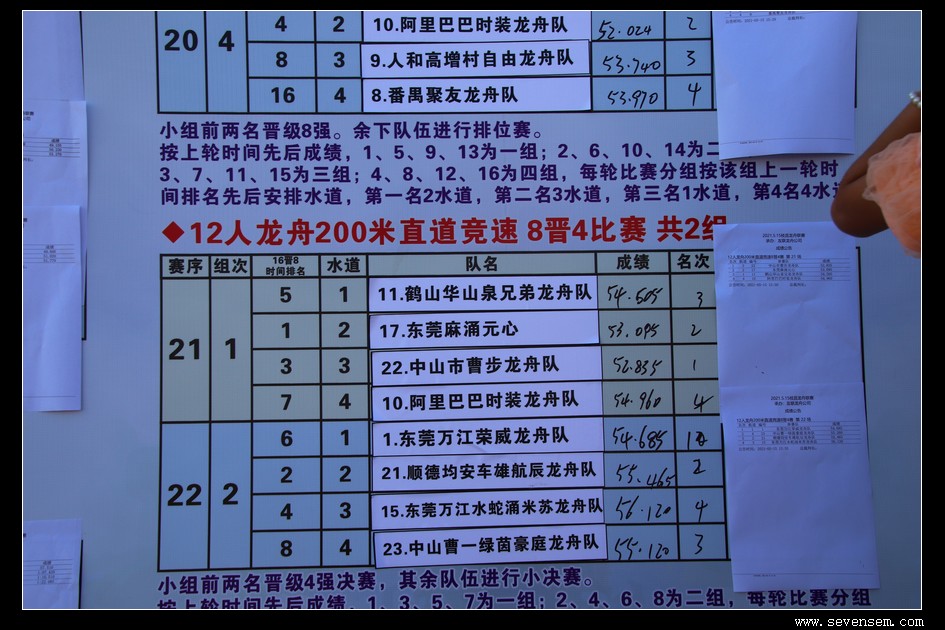 20 4 4 2 10.阿里巴巴时装龙舟队 52.024 2
8 3 9.人和高增村自由龙舟队 53.740 3
16 4 8.番禺聚友龙舟队 53.970 4
小组前两名晋级8强。余下队伍进行排位赛。
按上轮时间先后成绩，1、5、9、13为一组；2、6、10、14为二
3、7、11、15为三组；4、8、12、16为四组，每轮比赛分组按该组上一轮时
间排名先后安排水道，第一名2水道，第二名3水道，第三名1水道，第4名4水
◆12人龙舟200米直道竞速 8晋4比赛 共2组
赛序 组次 16晋8时间排名 水道 队名 成绩 名次
21 1 5 1 11.鹤山华山泉兄弟龙舟队 54.605 3
1 2 17.东莞麻涌元心 53.095 2
3 3 22.中山市曹步龙舟队 52.835 1
7 4 10.阿里巴巴时装龙舟队 54.960 4
22 2 6 1 1.东莞万江荣威龙舟队 54.685 1
2 2 21.顺德均安车雄航辰龙舟队 55.465 2
4 3 15.东莞万江水蛇涌米苏龙舟队 56.120 4
8 4 23.中山曹一绿茵豪庭龙舟队 55.120 3
小组前两名晋级4强决赛，其余队伍进行小决赛。
按上轮时间先后成绩，1、3、5、7为一组；2、4、6、8为二组，每轮比赛分组
www.sevensem.com